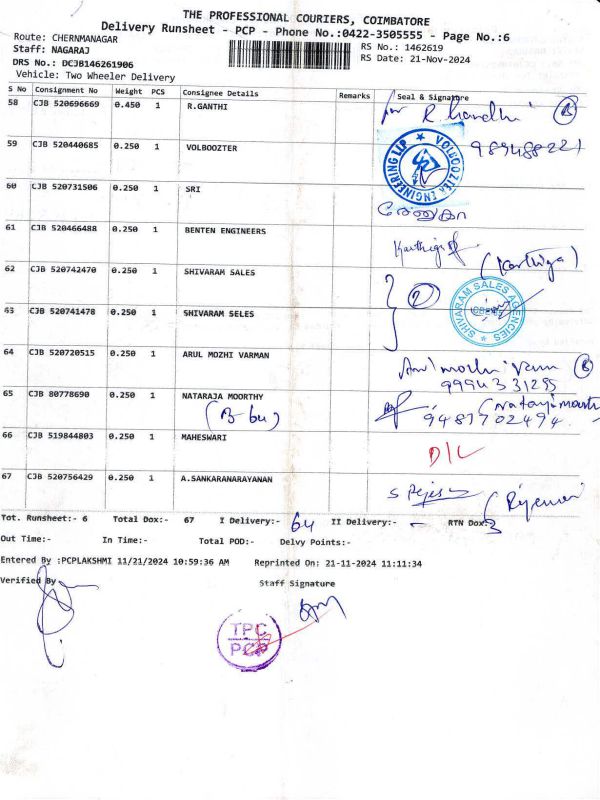 THE PROFESSIONAL COURIERS, COIMBATORE
Delivery Runsheet - PCP - Phone No.:0422-3505555 - Page No.:6
Route: CHERNMANAGAR
RS No.: 1462619
Staff: NAGARAJ
RS Date: 21-Nov-2024
DRS No.: DCJB146261906
Vehicle: Two Wheeler Delivery
S No Consignment No Weight PCS Consignee Details Remarks Seal & Signature
58 CJB 520696669 0.450 1 R.GANTHI for R. Gandhi B
59 CJB 520440685 0.250 1 VOLBOOZTER VOLBOOZTER ENGINEERING LLP
60 CJB 520731506 0.250 1 SRI
61 CJB 520466488 0.250 1 BENTEN ENGINEERS Karthiga (Karthiga)
62 CJB 520742470 0.250 1 SHIVARAM SALES 2 SHIVARAM SALES AGENCIES
63 CJB 520741478 0.250 1 SHIVARAM SELES
64 CJB 520720515 0.250 1 ARUL MOZHI VARMAN B
9994331295
65 CJB 80778690 0.250 1 NATARAJA MOORTHY
9487702494
66 CJB 519844803 0.250 1 MAHESWARI D/L
67 CJB 520756429 0.250 1 A.SANKARANARAYANAN
Tot. Runsheet:- 6 Total Dox:- 67 I Delivery:- 64 II Delivery:- - RTN Dox:- 3
Out Time:- In Time:- Total POD:- Delvy Points:-
Entered By :PCPLAKSHMI 11/21/2024 10:59:36 AM Reprinted On: 21-11-2024 11:11:34
Verified By Staff Signature
TPC
PCP